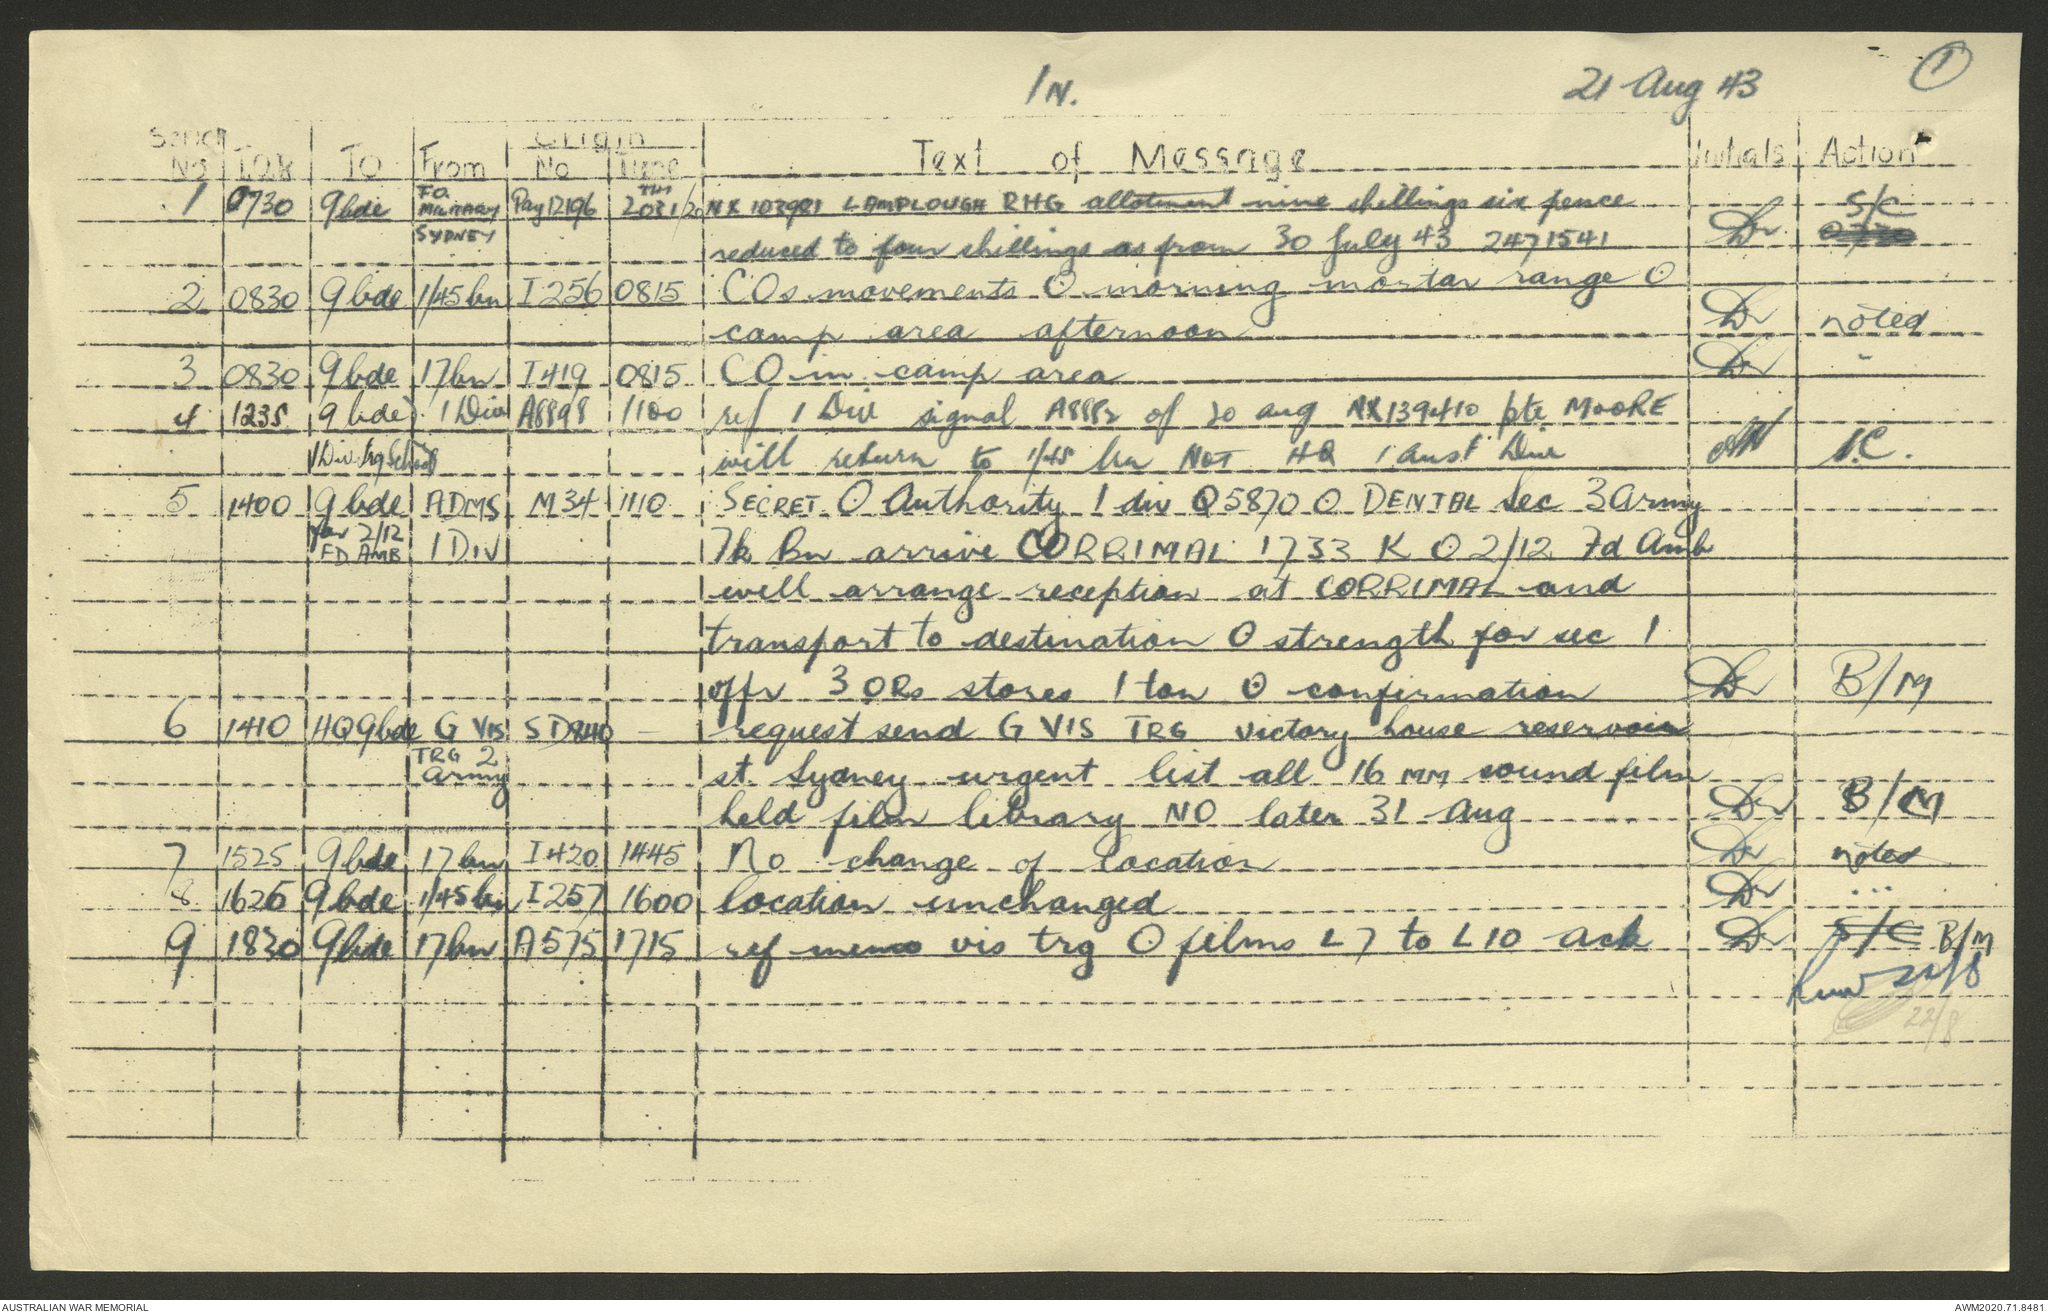 IN. 21 Aug 43 1
Serial Origin
No TOR TO From No Time Text of Message Initials Action
1 0730 9 bde FO. Pay 12196 2031/20 NX 103981 LAMPLOUGH RHG allotment nine shillings six pence S/C
MILITARY
SYDNEY reduced to four shillings as from 30 July 43 2471541
2 0830 9 bde 1/45 bn I 256 0815 COs movements O morning mortar range O
camp area afternoon noted
3 0830 9 bde 17 bn I 419 0815 CO in camp area "
4 1235 9 bde 1 Div A8898 1100 ref 1 Div signal A8882 of 20 aug NX139410 pte MOORE
1 Div Trg School will return to 1/45 bn NOT HQ 1 aust Div S.C.
5 1400 9 bde ADMS M 34 1110 SECRET O Authority 1 div Q5870 O DENTAL Sec 3 Army
for 2/12
FD AMB 1 DIV Tk Bn arrive CORRIMAL 1733 K O 2/12 Fd Amb
will arrange reception at CORRIMAL and
transport to destination O strength for sec 1
offr 3 ORs stores 1 ton O confirmation B/M
6 1410 HQ 9 bde G VIS SD 840 — request send G VIS TRG victory house reservoir
TRG 2
Army st. Sydney urgent list all 16 MM sound film
held film library NO later 31 Aug B/M
7 1525 9 bde 17 bn I 420 1445 No change of location noted
8 1626 9 bde 1/45 bn I 257 1600 location unchanged ...
9 1830 9 bde 17 bn A 575 1715 ref memo vis trg O films L 7 to L 10 ack S/C B/M
22/8
22/8
AUSTRALIAN WAR MEMORIAL AWM2020.71.8481